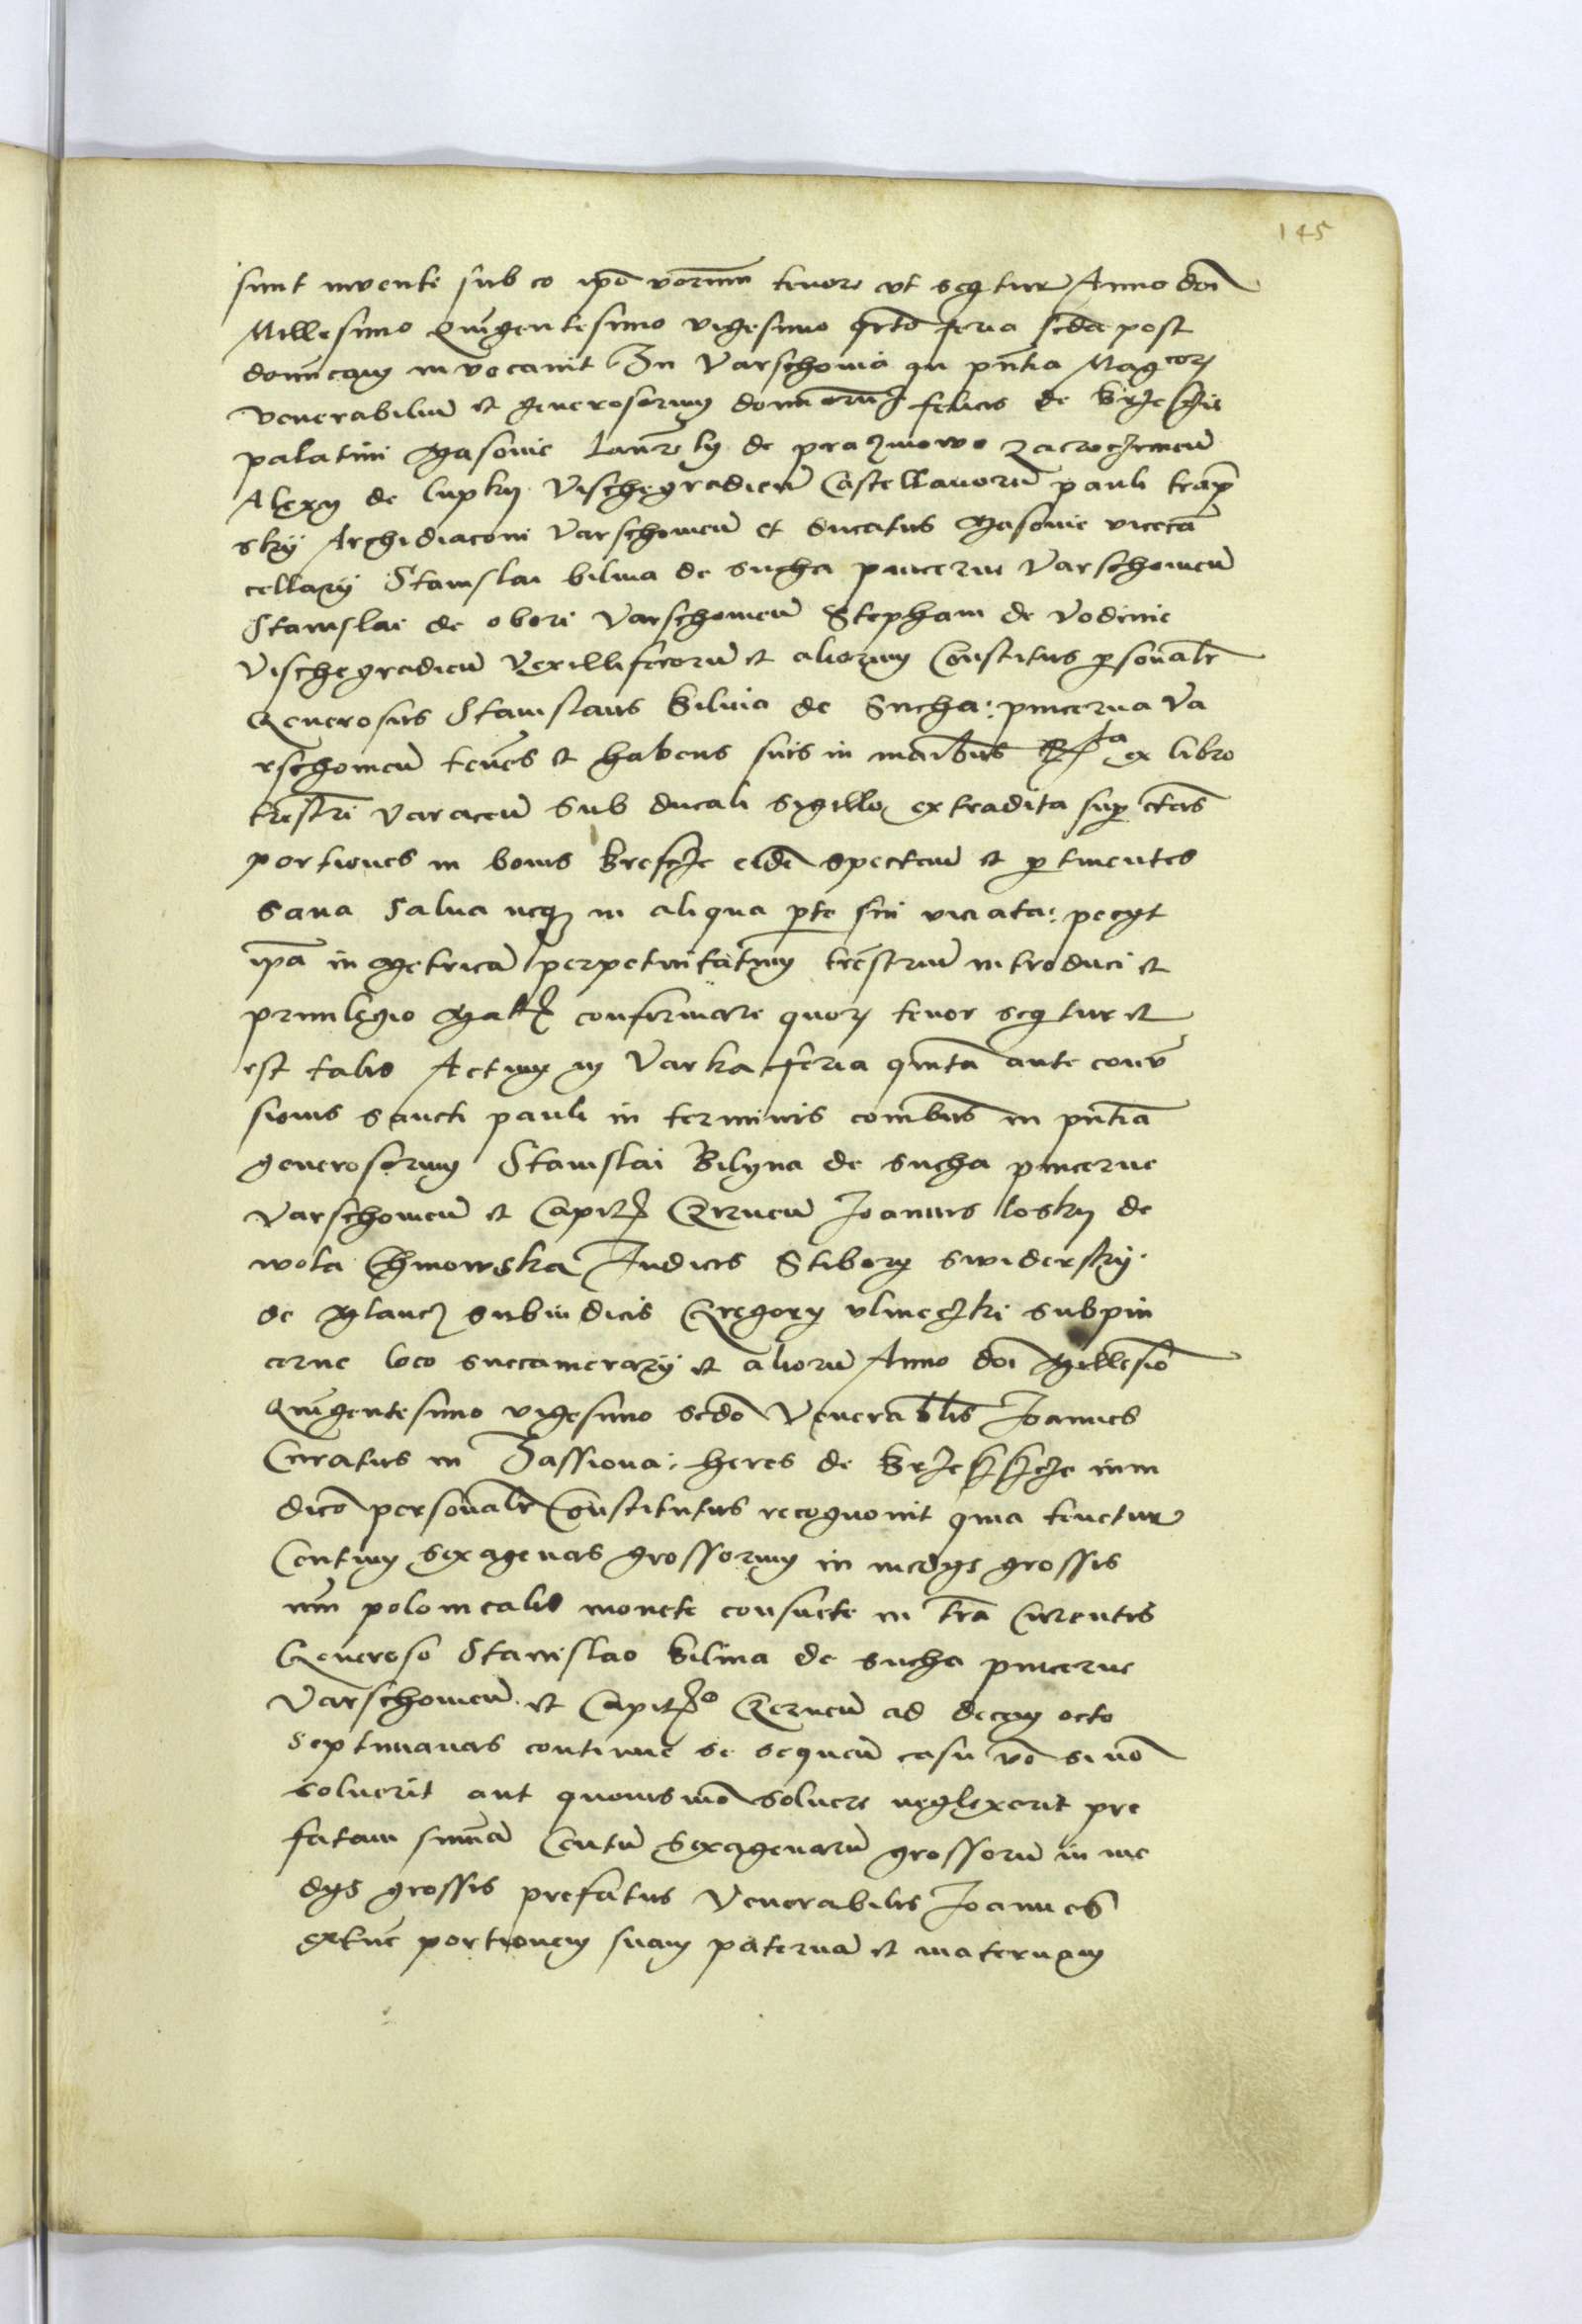 145
sunt invente sub eo ipso verumm tenore ut seqtur Anno dni
Millesimo Quigentesimo vigesimo qrto feria scda post
dominicam invocavit In Varschovia in pntia Magcorz
venerabilium et generosorum dominorum felicis de
palatini Masovie laurety de prazmowo zacroczimen
Alexy de lupky Vischegradien Castellanorum pauli
sky Archidiaconi Varschovien et ducatus Masovie viceca
cellarij Stanislai bilina de sucha pincerne Varschovien
Stanislai de obori Varschovien Stephani de Vodinie
Vischegradien Vexilliferorum et aliorum Constitutus psonalr
Generosus Stanislaus Bilina de Sucha: pincerna Va
rschovien tenens et habens suis in manibus ex libro
trestri Varacen sub ducali sigillo extradita sup certas
portiones in bonis eidem specten et ptinentes
sana salva neqz in aliqua pte sui viciata: pecyt
ipa in Metricam perpetuitatum trestrium introduci et
privilegio confirmare quorz tenor seqtur et
est talis Actum in Varka feria quinta ante conv
sionis sancti pauli in terminis comibus in pntia
generosorum Stanislai Bilyna de sucha pincerne
Varschovien et Capit Czernen Joannis losky de
wola Chinowska Judicis Stibory swidersky
de subiudicis Gregory subpin
cerne loco succamerarij et aliorum Anno doi Millesio
Quigentesimo vigesimo scdo Venerablis Joannes
Curatus in Jassiona: heres de iuri
dico personalr Constitutus recognovit quia tenetur
Centum sexagenas grossorum in medys grossis
nui polonicalis monete consuete in tra Currentis
Generoso Stanislao Bilina de sucha pincerne
Varschovien et Capito Czernen ad decem octo
septimanas continue se sequen casu vo si no
solverit aut quovismo solvere neglexerit pre
fatam summa Centum sexagenarum grossorum in me
dys grossis prefatus Venerabilis Joannes
extunc portionem suam paterna et maternam